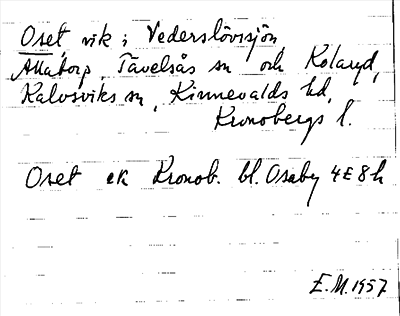 Oset, vik i Vederslövssjön
Allatorp, Tävelsås sn och Kolaryd,
Kalvsviks sn, Kinnevalds hd,
Kronobergs l.
Oset ek Kronob. bl. Osaby 4E8h
E.M.1957